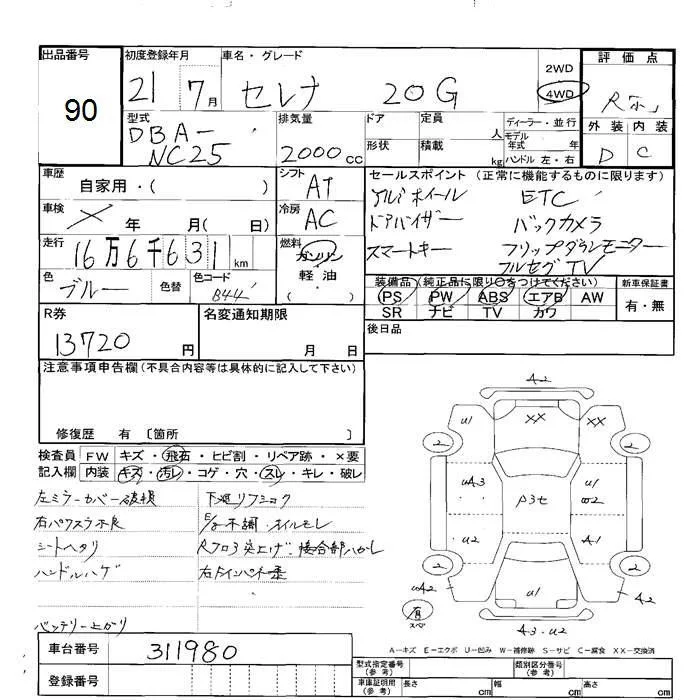 出品番号
90
初度登録年月
21 7月
車名・グレード
セレナ 20G
2WD
4WD
評価点
外装 内装
D C
型式
DBA-
NC25
排気量
2000cc
ドア
定員
人
ディーラー・並行
モデル
年式 年
形状
積載
kg
ハンドル 左・右
車歴
自家用・( )
シフト
AT
セールスポイント (正常に機能するものに限ります)
アルミホイール ETC
ドアバイザー バックカメラ
スマートキー フリップダウンモニター
フルセグTV
車検
× 年 月( 日)
冷房
AC
走行
16万6千631km
燃料
ガソリン
軽油
( )
色
ブルー
色替
色コード
B44
装備品 (純正品に限り○をつけてください)
PS PW ABS エアB AW
SR ナビ TV カワ
新車保証書
有・無
後日品
R券
13720円
名変通知期限
月 日
注意事項申告欄(不具合内容等は具体的に記入して下さい)
修復歴 有 〔箇所 〕
検査員 FW キズ・飛石・ヒビ割・リペア跡・×要
記入欄 内装 キズ・汚レ・コゲ・穴・スレ・キレ・破レ
左ミラーカバー破損
右パワスラ不良
シートヘタリ
ハンドルハゲ
バッテリー上がり
下廻りフショク
E/g不調・オイルモレ
車台番号
311980
登録番号
A2
U1
XX
XX
2
2
UA3
P3セ
U1
W2
U2
A1
2
2
UA2
U1
A2
A3.U2
A-キズ E-エクボ U-凹み W-補修跡 S-サビ C-腐食 XX-交換済
型式指定番号
(参考)
類別区分番号
(参考)
車庫証明用
(参考)
長さ cm
幅 cm
高さ cm